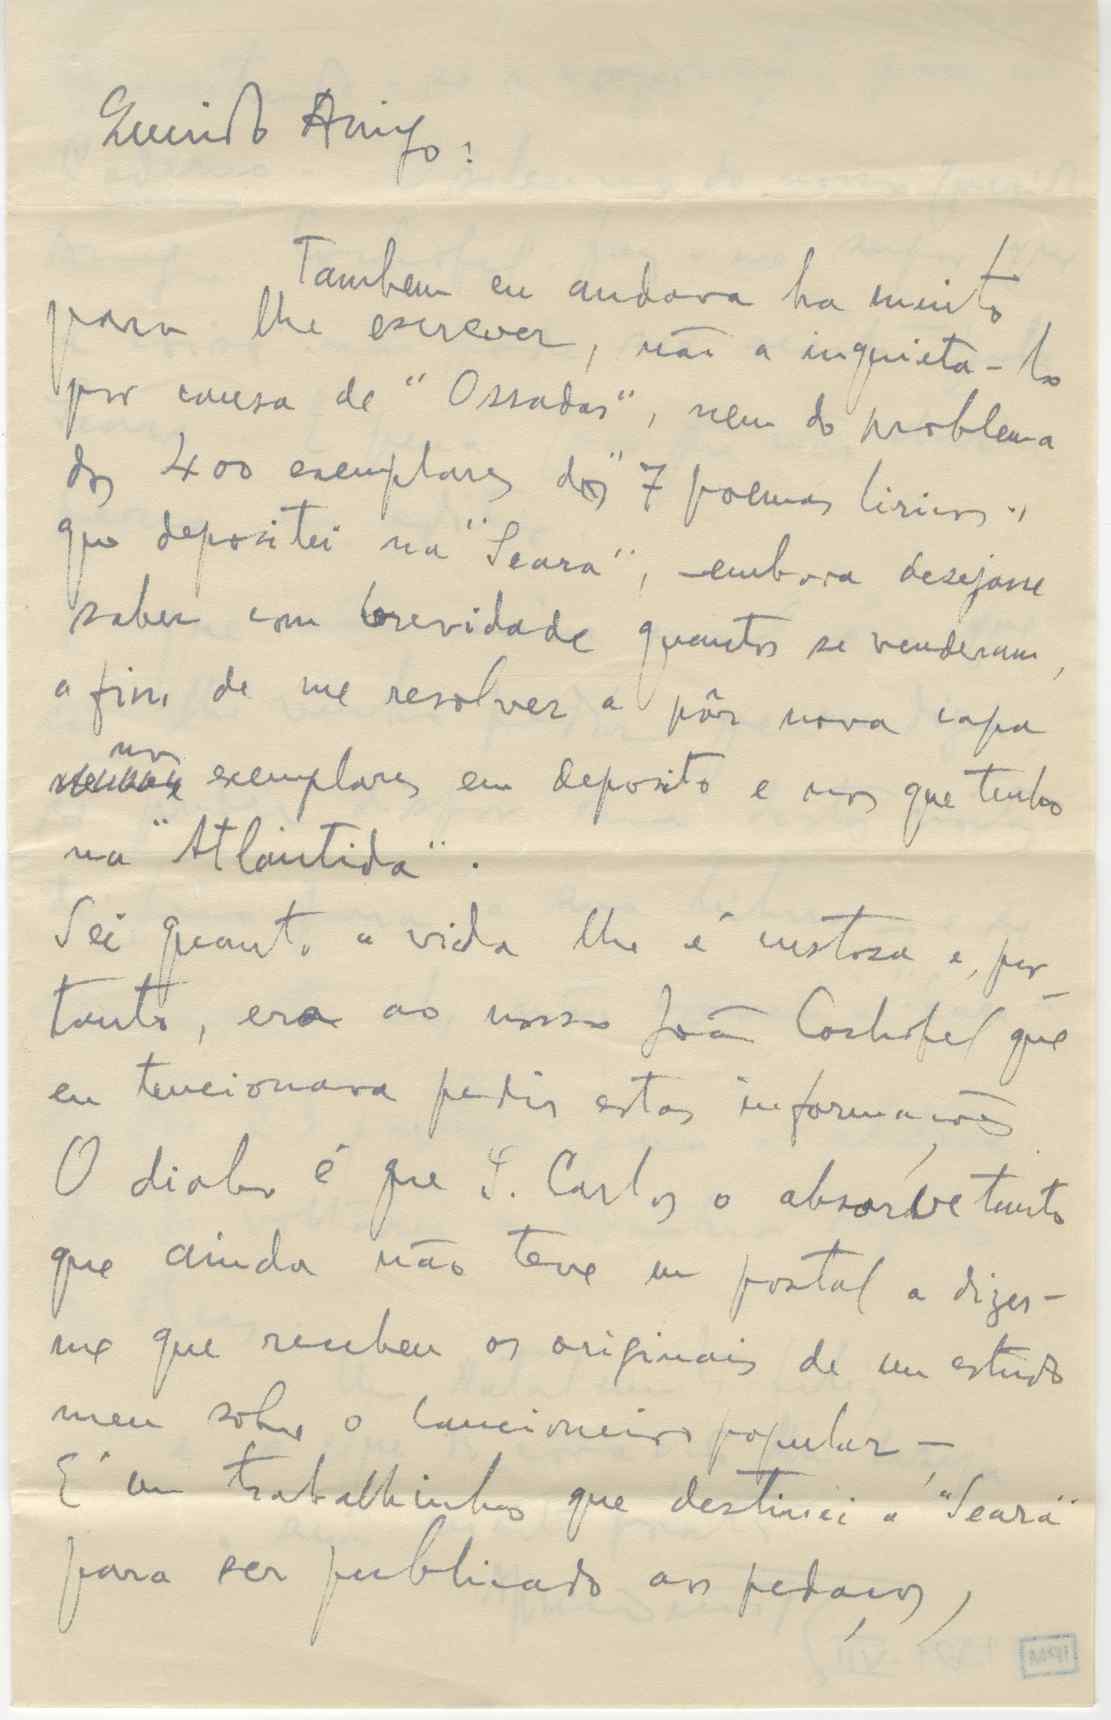 Querido Amigo:
Tambem eu andava ha muito
para lhe escrever, não a inquieta-lo
por causa de "Ossadas", nem do problema
dos 400 exemplares dos "7 poemas liricos",
que depositei na "Seara", embora desejasse
saber com brevidade quantos se venderam,
a fim de me resolver a pôr nova capa
nos
exemplares em deposito e nos que tenho
na "Atlântida".
Sei quanto a vida lhe é custosa e, por-
tanto, era ao nosso João Cochofel que
eu tencionava pedir estas informações.
O diabo é que S. Carlos o absorve tanto
que ainda não teve um postal a dizer-
me que recebeu os originais de um estudo
meu sobre o cancioneiro popular –
É um trabalhinho que destinei à "Seara"
para ser publicado aos pedaços,
IPM